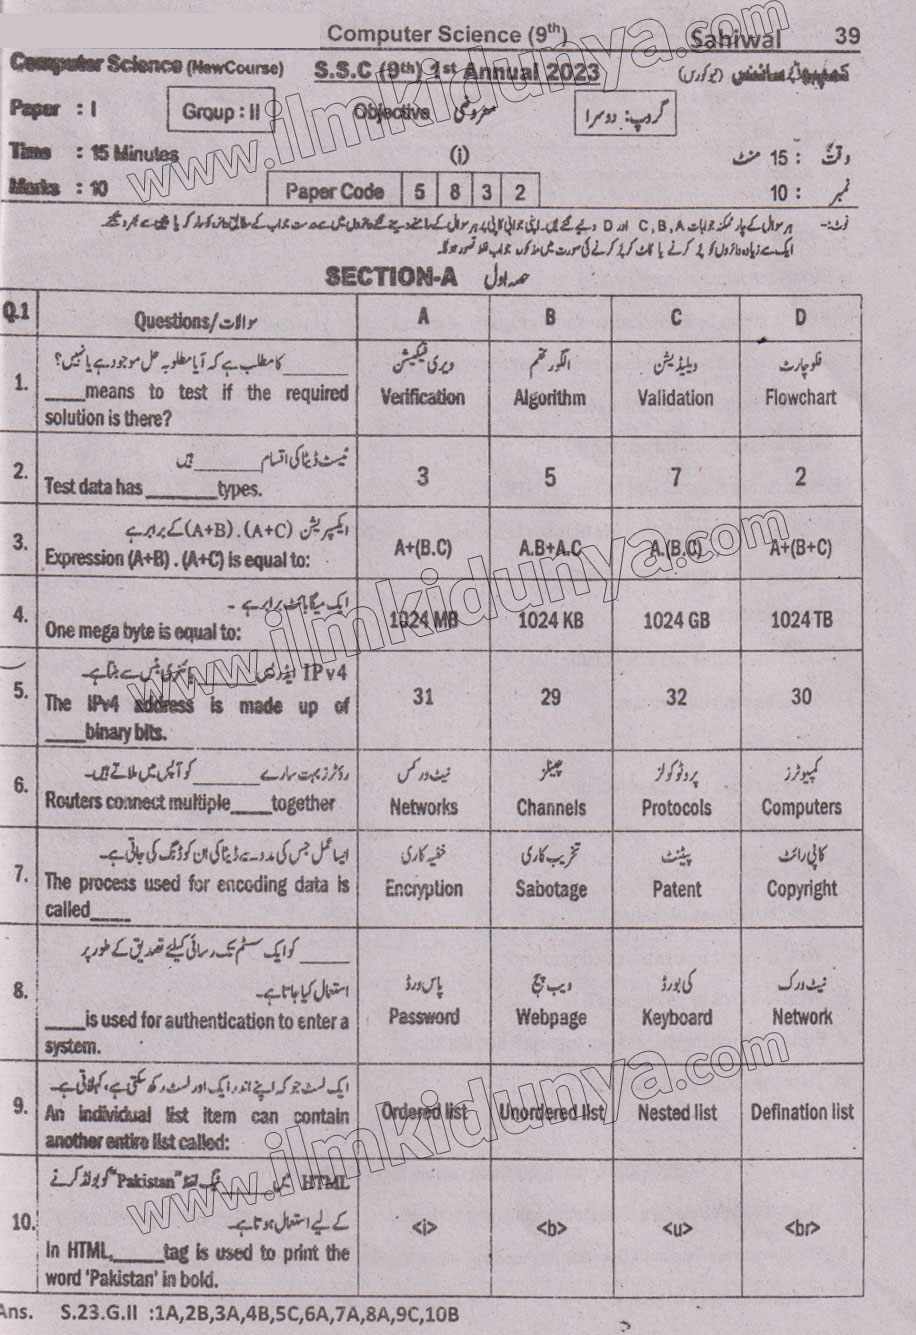 Computer Science (9th)
Sahiwal
39
Computer Science (NewCourse)
S.S.C (9th) 1st Annual 2023
کمپیوٹر سائنس (نیو کورس)
Paper : I
Group : II
Objective
معروضی
گروپ: دوسرا
Time : 15 Minutes
(i)
وقت : 15 منٹ
Marks : 10
Paper Code 5 8 3 2
نمبر : 10
SECTION-A حصہ اول
Q.1 Questions/سوالات A B C D
1. ______ کا مطلب ہے کہ آیا مطلوبہ حل موجود ہے یا نہیں؟
____means to test if the required
solution is there?
ویری فیکیشن
Verification
الگورتھم
Algorithm
ویلیڈیشن
Validation
فلوچارٹ
Flowchart
2. ٹیسٹ ڈیٹا کی اقسام ______ ہیں
Test data has _______types.
3 5 7 2
3. ایکسپریشن (A+B) . (A+C) کے برابر ہے
Expression (A+B) . (A+C) is equal to:
A+(B.C) A.B+A.C A.(B.C) A+(B+C)
4. ایک میگا بائٹ برابر ہے -
One mega byte is equal to:
1024 MB 1024 KB 1024 GB 1024 TB
5. IPv4 ایڈریس ______ بائنری بٹس سے بنتا ہے۔
The IPv4 address is made up of
____binary bits.
31 29 32 30
6. روٹرز بہت سارے ______ کو آپس میں ملاتے ہیں۔
Routers connect multiple____together
نیٹ ورکس
Networks
چینلز
Channels
پروٹوکولز
Protocols
کمپیوٹرز
Computers
7. ایسا عمل جس کی مدد سے ڈیٹا کی ان کوڈنگ کی جاتی ہے۔
The process used for encoding data is
called____
خفیہ کاری
Encryption
تخریب کاری
Sabotage
پیٹنٹ
Patent
کاپی رائٹ
Copyright
8. ____ کو ایک سسٹم تک رسائی کیلئے تصدیق کے طور پر
استعمال کیا جاتا ہے۔
____is used for authentication to enter a
system.
پاس ورڈ
Password
ویب پیج
Webpage
کی بورڈ
Keyboard
نیٹ ورک
Network
9. ایک لسٹ جو کہ اپنے اندر ایک اور لسٹ رکھ سکتی ہے، کہلاتی ہے۔
An individual list item can contain
another entire list called:
Ordered list Unordered list Nested list Defination list
10. HTML میں ____ ٹیگ لفظ "Pakistan" کو بولڈ کرنے
کے لیے استعمال ہوتا ہے۔
In HTML,_____tag is used to print the
word 'Pakistan' in bold.
<i> <b> <u> <br>
Ans. S.23.G.II :1A,2B,3A,4B,5C,6A,7A,8A,9C,10B
www.ilmkidunya.com
www.ilmkidunya.com
www.ilmkidunya.com